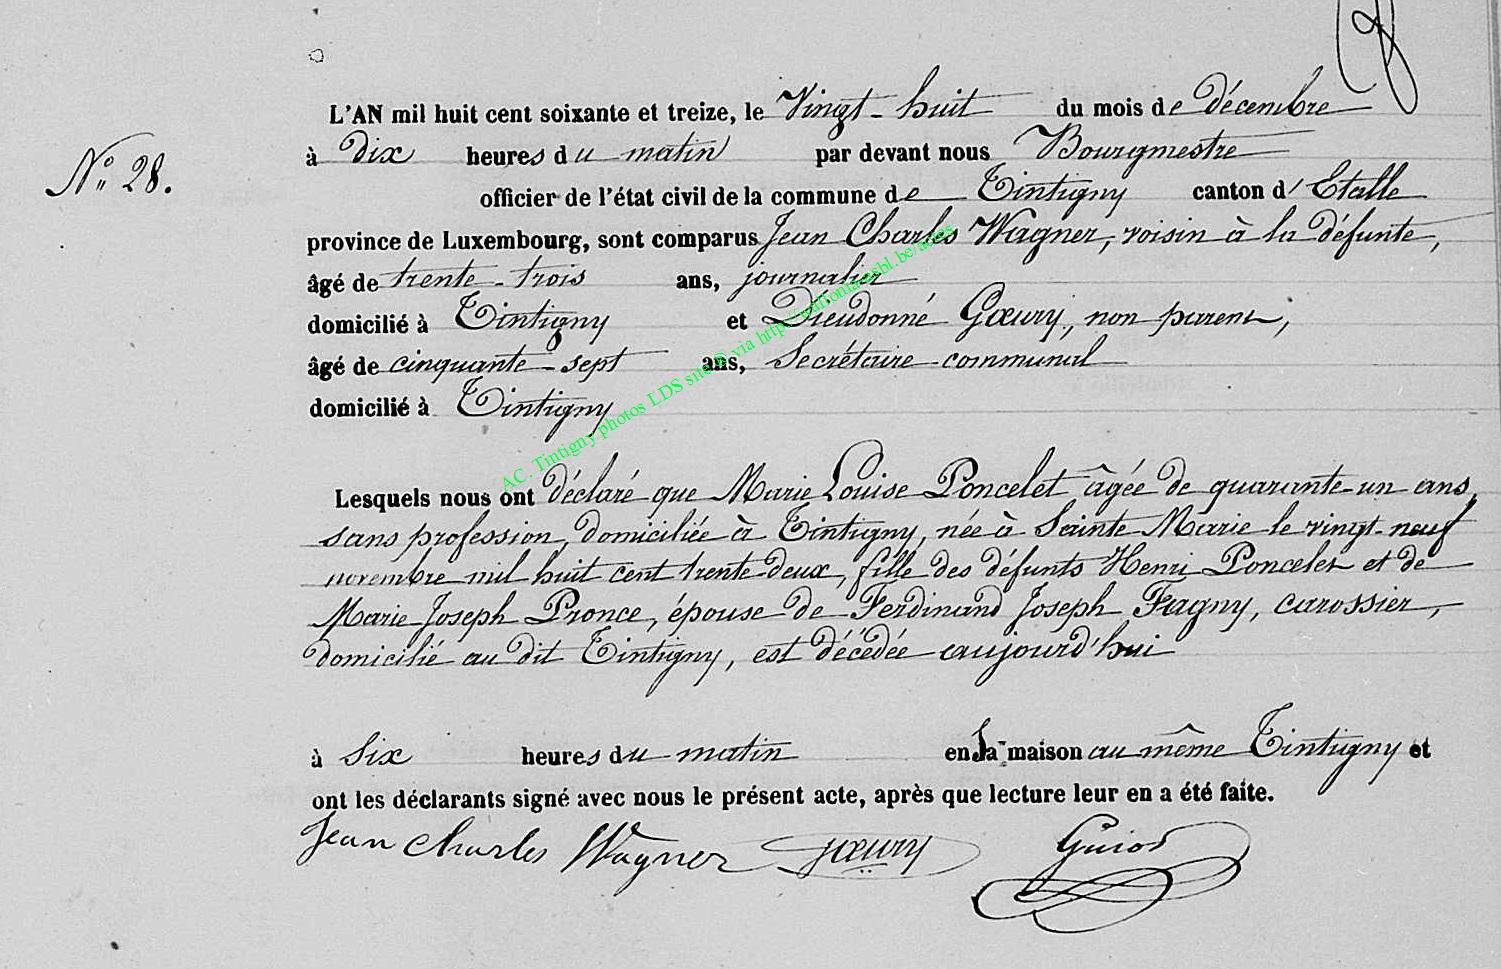 L'AN mil huit cent soixante et treize, le Vingt-huit du mois de décembre
à Dix heures du matin par devant nous Bourgmestre
N° 28.
officier de l'état civil de la commune de Tintigny canton d'Etalle
province de Luxembourg, sont comparus Jean Charles Wagner, voisin à la défunte,
âgé de trente-trois ans, journalier
domicilié à Tintigny et Dieudonné Gœury, non parent,
âgé de cinquante-sept ans, Secrétaire communal
domicilié à Tintigny
AC. Tintigny photos LDS site © via http://wallonia-asbl.be/actes
Lesquels nous ont déclaré que Marie Louise Poncelet âgée de quarante-un ans,
sans profession, domiciliée à Tintigny, née à Sainte Marie le vingt-neuf
novembre mil huit cent trente deux, fille des défunts Henri Poncelet et de
Marie Joseph Pronce, épouse de Ferdinand Joseph Fagny, carossier,
domicilié au dit Tintigny, est décédée aujourd'hui
à Six heures du matin en sa maison au même Tintigny et
ont les déclarants signé avec nous le présent acte, après que lecture leur en a été faite.
Jean Charles Wagner Gœury